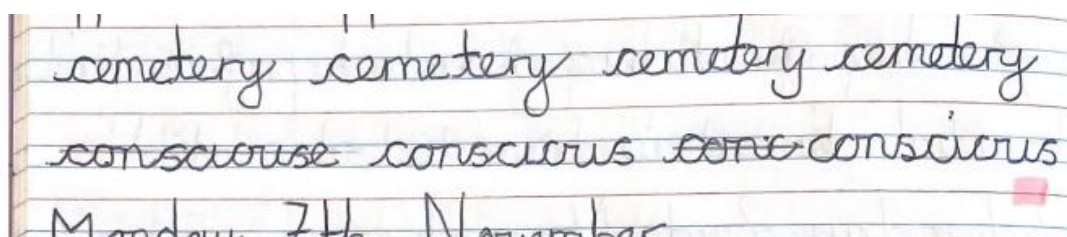 cemetery cemetery cemetery cemetery
consciouse conscious conc conscious
Monday 7th November